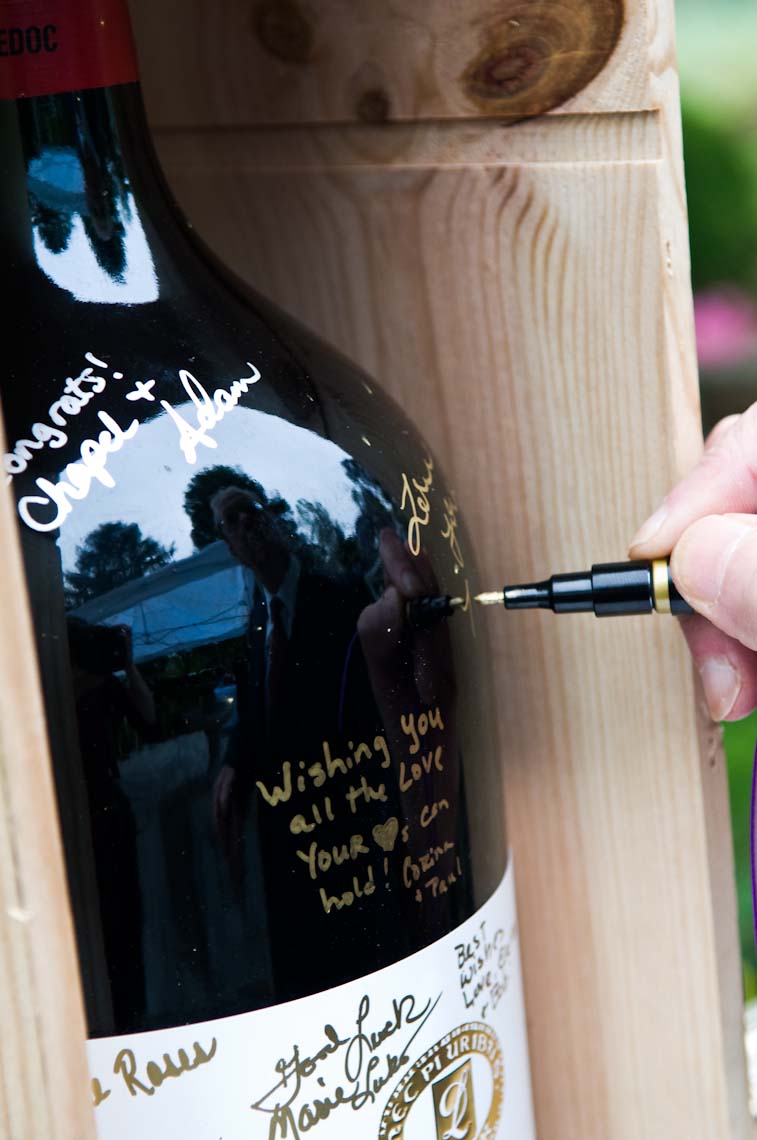 EDOC
ongrats!
Chapel +
Adam
Wishing you
all the Love
Your ♥s can
hold! Corina
+ Paul
Best
Wishes
Love,
+ Bob
Roses
Good Luck
Marie
NEC PLURIBUS
L